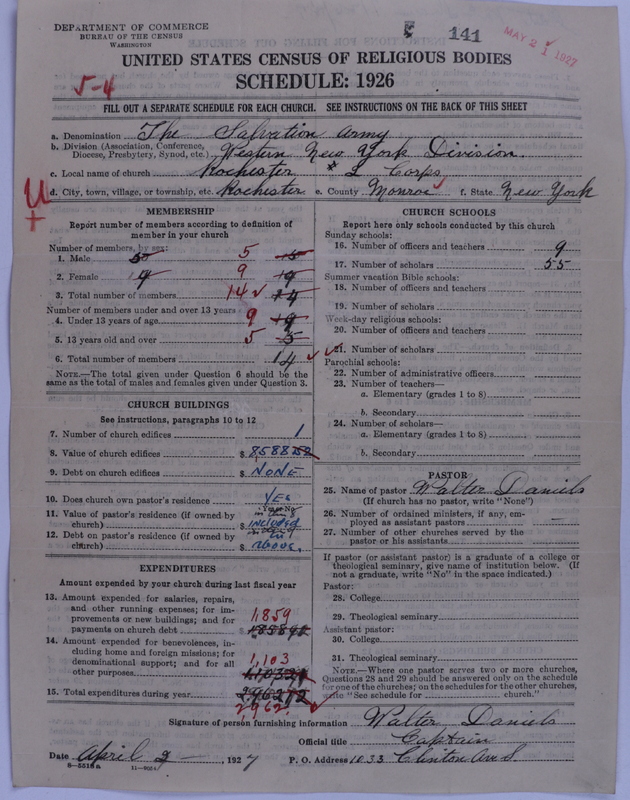 DEPARTMENT OF COMMERCE
BUREAU OF THE CENSUS
WASHINGTON
141
MAY 21 1927
UNITED STATES CENSUS OF RELIGIOUS BODIES
SCHEDULE: 1926
5-4
FILL OUT A SEPARATE SCHEDULE FOR EACH CHURCH. SEE INSTRUCTIONS ON THE BACK OF THIS SHEET
a. Denomination The Salvation Army
b. Division (Association, Conference, Diocese, Presbytery, Synod, etc.) Western New York Division.
c. Local name of church Rochester # 1 Corps
d. City, town, village, or township, etc. Rochester e. County Monroe f. State New York
U
+
MEMBERSHIP
Report number of members according to definition of
member in your church
Number of members, by sex:
1. Male 5
2. Female 9 19
3. Total number of members 14
Number of members under and over 13 years
4. Under 13 years of age 9 19
5. 13 years old and over 5 5
6. Total number of members 14
NOTE.—The total given under Question 6 should be the
same as the total of males and females given under Question 3.
CHURCH BUILDINGS
See instructions, paragraphs 10 to 12
7. Number of church edifices 1
8. Value of church edifices $ 8588
9. Debt on church edifices $ NONE
10. Does church own pastor's residence YES
(Yes or No)
11. Value of pastor's residence (if owned by
church) $ included
12. Debt on pastor's residence (if owned by
church) $ in above.
EXPENDITURES
Amount expended by your church during last fiscal year
13. Amount expended for salaries, repairs,
and other running expenses; for im-
provements or new buildings; and for
payments on church debt 1,859
14. Amount expended for benevolences, in-
cluding home and foreign missions; for
denominational support; and for all
other purposes 1,103
15. Total expenditures during year
2,962
CHURCH SCHOOLS
Report here only schools conducted by this church
Sunday schools:
16. Number of officers and teachers 9
17. Number of scholars 55
Summer vacation Bible schools:
18. Number of officers and teachers
19. Number of scholars
Week-day religious schools:
20. Number of officers and teachers
21. Number of scholars
Parochial schools:
22. Number of administrative officers
23. Number of teachers—
a. Elementary (grades 1 to 8)
b. Secondary
24. Number of scholars—
a. Elementary (grades 1 to 8)
b. Secondary
PASTOR
25. Name of pastor Walter Daniels
(If church has no pastor, write "None")
26. Number of ordained ministers, if any, em-
ployed as assistant pastors —
27. Number of other churches served by the
pastor or his assistants
If pastor (or assistant pastor) is a graduate of a college or
theological seminary, give name of institution below. (If
not a graduate, write "No" in the space indicated.)
Pastor:
28. College
29. Theological seminary
Assistant pastor:
30. College
31. Theological seminary
NOTE.—Where one pastor serves two or more churches,
Questions 28 and 29 should be answered only on the schedule
for one of the churches; on the schedules for the other churches,
write "See schedule for ______ church."
Signature of person furnishing information Walter Daniels
Official title Captain
Date April 2 —, 1927 P. O. Address 1033 Clinton Av S.
8—5518a 11—9051